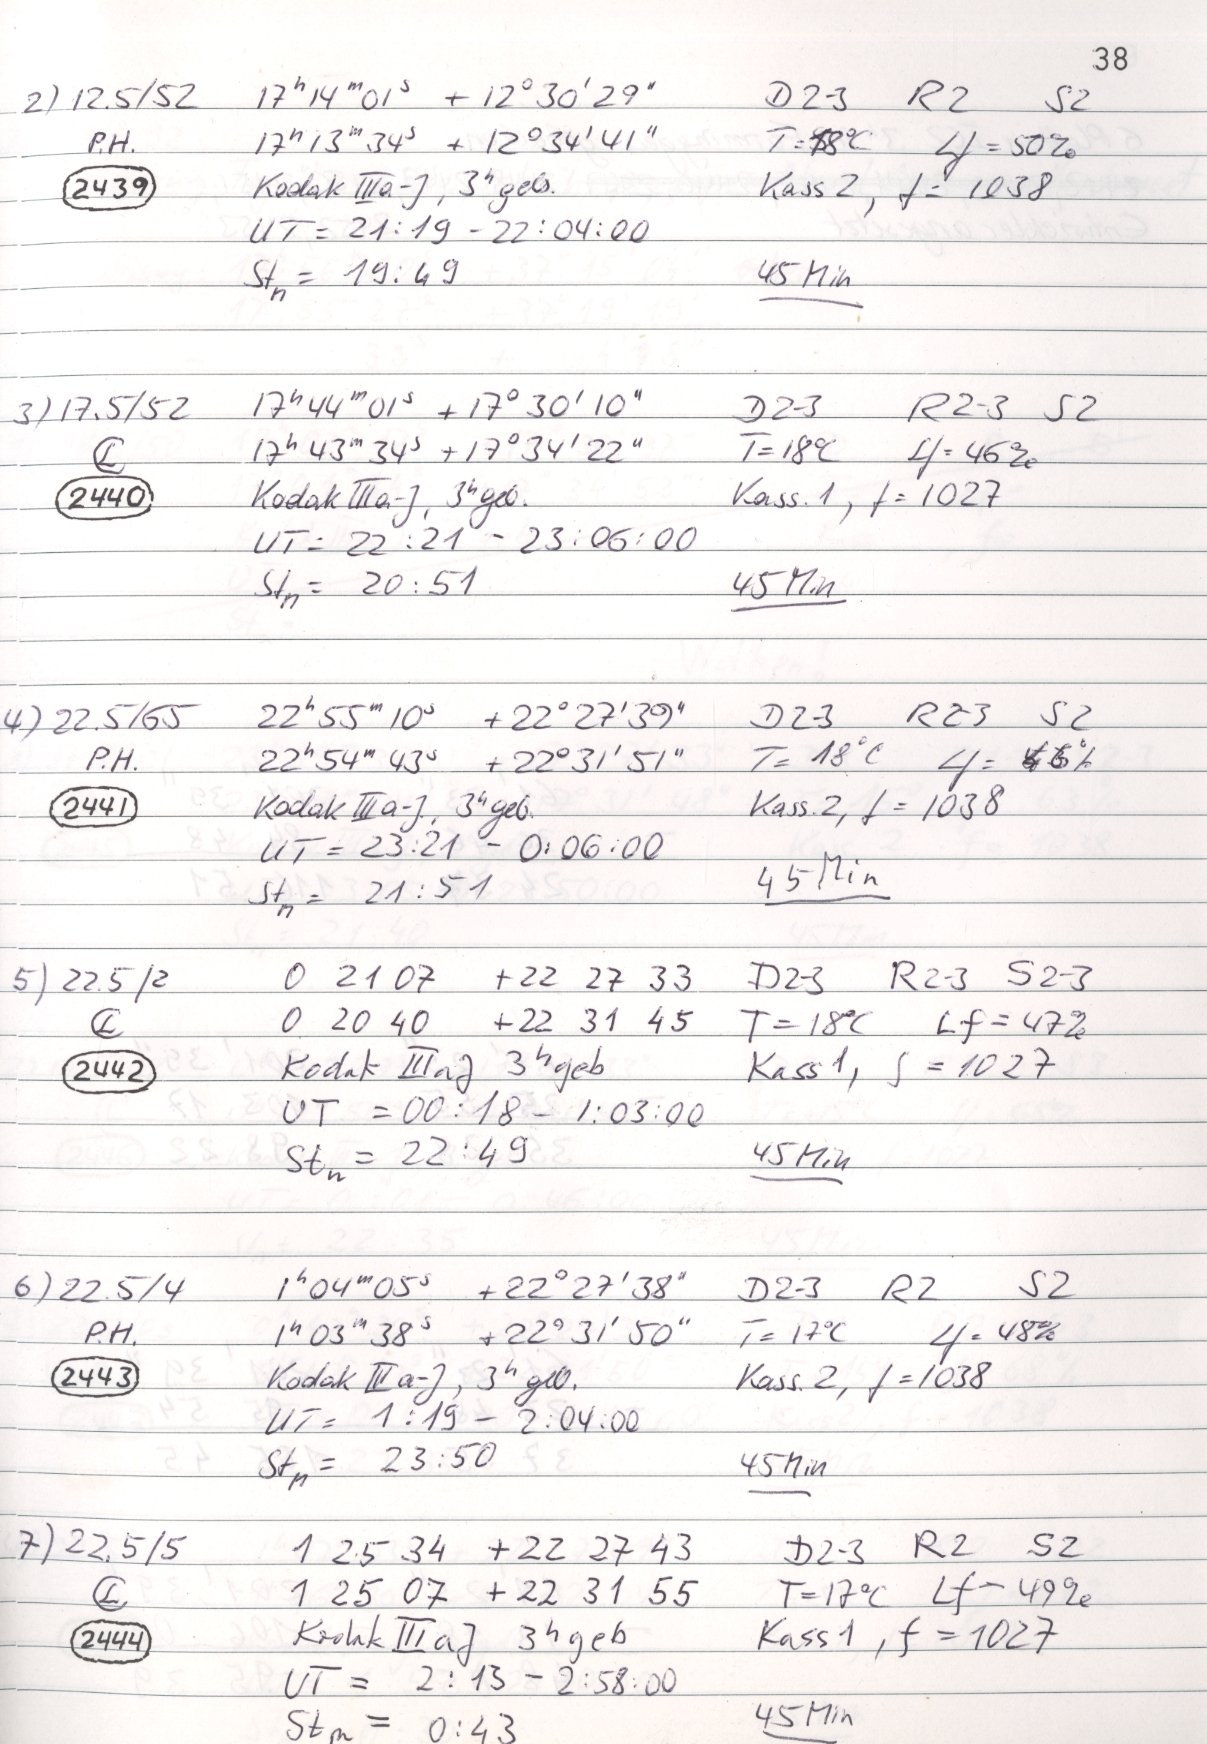 38
2) 12.5/52 17ʰ14ᵐ01ˢ + 12° 30' 29" D2-3 R2 S2
P.H. 17ʰ13ᵐ34ˢ + 12° 34' 41" T=18°C Lf = 50%
2439 Kodak IIIa-J, 3ʰ geb. Kass 2, f = 1038
UT = 21:19 - 22:04:00
Stₙ = 19:49 45 Min
3) 17.5/52 17ʰ44ᵐ01ˢ + 17° 30' 10" D2-3 R2-3 S2
CL 17ʰ43ᵐ34ˢ + 17° 34' 22" T=18°C Lf = 46%
2440 Kodak IIIa-J, 3ʰ geb. Kass. 1, f = 1027
UT = 22:21 - 23:06:00
Stₙ = 20:51 45 Min
4) 22.5/65 22ʰ55ᵐ10ˢ +22° 27' 39" D2-3 R2-3 S2
P.H. 22ʰ54ᵐ43ˢ +22° 31' 51" T= 18°C Lf = %
2441 Kodak IIIa-J, 3ʰ geb. Kass. 2, f = 1038
UT = 23:21 - 0:06:00
Stₙ = 21:51 45 Min
5) 22.5/2 0 21 07 +22 27 33 D2-3 R2-3 S2-3
CL 0 20 40 +22 31 45 T = 18°C Lf = 47%
2442 Kodak IIIaJ 3ʰ geb Kass 1, f = 1027
UT = 00:18 - 1:03:00
Stₙ = 22:49 45 Min
6) 22.5/4 1ʰ04ᵐ05ˢ +22° 27' 38" D2-3 R2 S2
P.H. 1ʰ03ᵐ38ˢ +22° 31' 50" T= 17°C Lf = 48%
2443 Kodak IIIa-J, 3ʰ geb. Kass. 2, f = 1038
UT = 1:19 - 2:04:00
Stₙ = 23:50 45 Min
7) 22.5/5 1 25 34 +22 27 43 D2-3 R2 S2
CL 1 25 07 +22 31 55 T=17°C Lf = 49%
2444 Kodak IIIaJ 3ʰ geb Kass 1, f = 1027
UT = 2:13 - 2:58:00
Stₙ = 0:43 45 Min